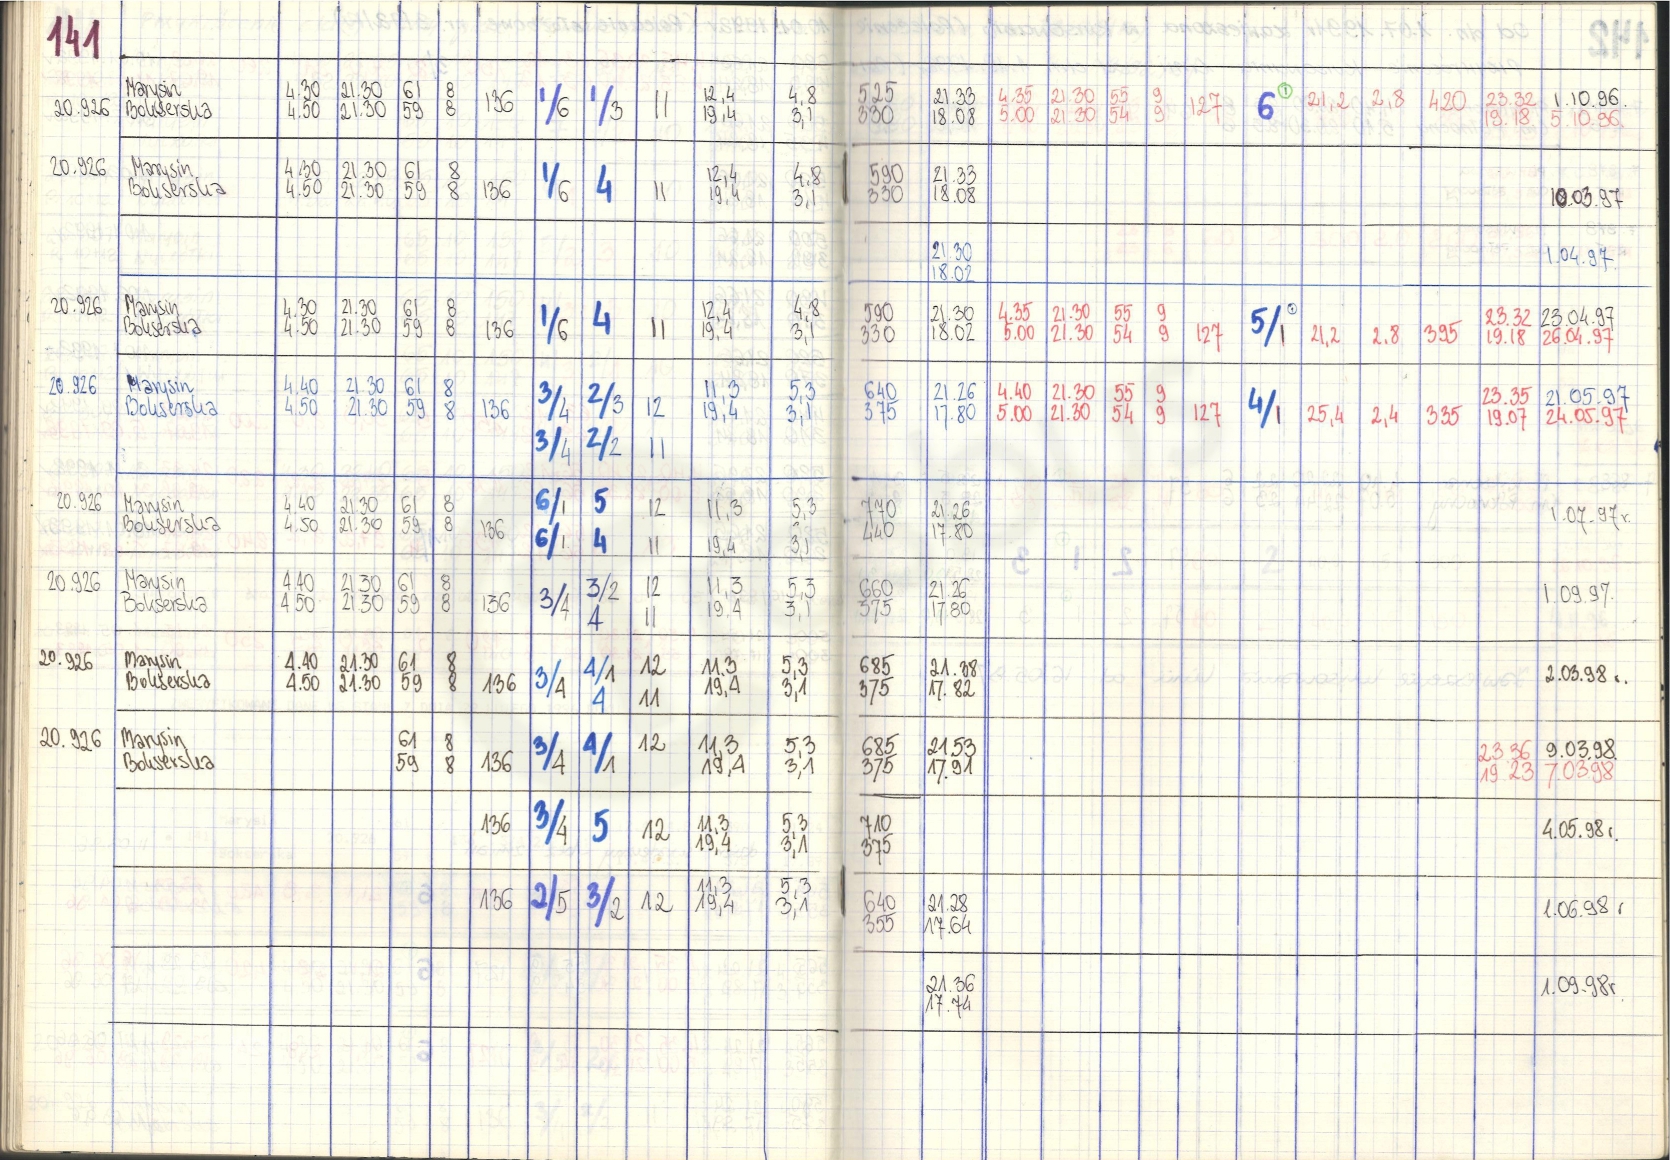 141
Marysin 4.30 21.30 61 8 12,4 4,8 525 21.33 4.35 21.30 55 9 23.32 1.10.96.
20.926 Bokserska 4.50 21.30 59 8 136 1/6 1/3 11 19,4 3,1 330 18.08 5.00 21.30 54 9 127 6 1 21,2 2,8 420 19.18 5.10.96.
20.926 Marysin 4.30 21.30 61 8 12,4 4,8 590 21.33
Bokserska 4.50 21.30 59 8 136 1/6 4 11 19,4 3,1 330 18.08 10.03.97
21.30 1.04.97.
18.02
20.926 Marysin 4.30 21.30 61 8 12,4 4,8 590 21.30 4.35 21.30 55 9 23.32 23.04.97
Bokserska 4.50 21.30 59 8 136 1/6 4 11 19,4 3,1 330 18.02 5.00 21.30 54 9 127 5/1 21,2 2,8 395 19.18 26.04.97
20.926 Marysin 4.40 21.30 61 8 11,3 5,3 640 21.26 4.40 21.30 55 9 23.35 21.05.97
Bokserska 4.50 21.30 59 8 136 3/4 2/3 12 19,4 3,1 375 17.80 5.00 21.30 54 9 127 4/1 25,4 2,4 335 19.07 24.05.97
3/4 2/2 11
20.926 Marysin 4.40 21.30 61 8 6/1 5 12 11,3 5,3 770 21.26 1.07.97r.
Bokserska 4.50 21.30 59 8 136 6/1 4 11 19,4 3,1 440 17.80
20.926 Marysin 4.40 21.30 61 8 3/2 12 11,3 5,3 660 21.26 1.09.97.
Bokserska 4.50 21.30 59 8 136 3/4 4 11 19,4 3,1 375 17.80
20.926 Marysin 4.40 21.30 61 8 4/1 12 11,3 5,3 685 21.38 2.03.98 r.
Bokserska 4.50 21.30 59 8 136 3/4 4 11 19,4 3,1 375 17.82
20.926 Marysin 61 8 12 11,3 5,3 685 21.53 23.36 9.03.98.
Bokserska 59 8 136 3/4 4/1 19,4 3,1 375 17.91 19.23 7.03.98
136 3/4 5 12 11,3 5,3 710 4.05.98 r.
19,4 3,1 375
136 2/5 3/2 12 11,3 5,3 640 21.28 1.06.98 r
19,4 3,1 355 17.64
21.36 1.09.98r.
17.74